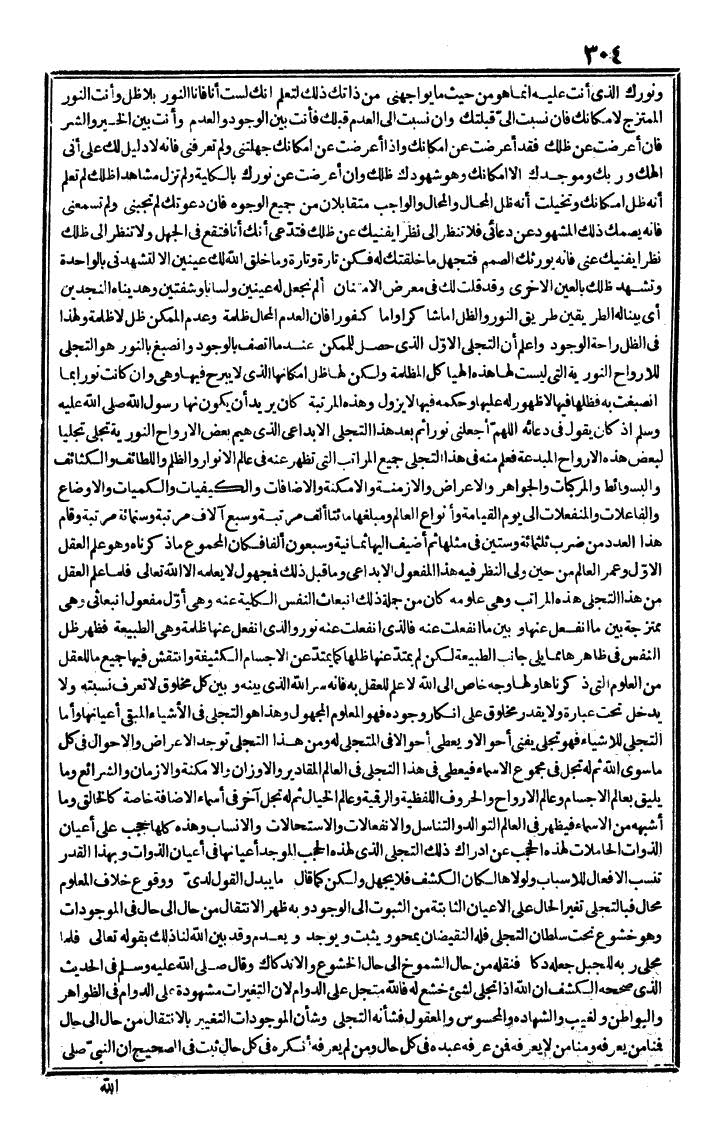 ٣٠٤
ونورك الذى أنت عليه انما هو من حيث ما يواجهنى من ذاتك ذلك لتعلم انك لست أنا فانا النور بلا ظل وأنت النور
الممتزج لامكانك فان نسبت الىّ قبلتك وان نسبت الى العدم قبلك فأنت بين الوجود والعدم وأنت بين الخير والشر
فان أعرضت عن ظلك فقد أعرضت عن امكانك واذا أعرضت عن امكانك جهلتنى ولم تعرفنى فانه لا دليل لك على أنى
الهك وربك وموجدك الا امكانك وهو شهودك ظلك وان أعرضت عن نورك بالكلية ولم تزل مشاهدا ظلك لم تعلم
أنه ظل امكانك وتخيلت أنه ظل المحال والمحال والواجب متقابلان من جميع الوجوه فان دعوتك لم تجبنى ولم تسمعنى
فانه يصمك ذلك المشهود عن دعائى فلا تنظر الى نظرا يفنيك عن ظلك فتدّعى أنك أنا فتقع فى الجهل ولا تنظر الى ظلك
نظرا يفنيك عنى فانه يورثك الصمم فتجهل ما خلقتك له فكن تارة وتارة وما خلق الله لك عينين الا لتشهدنى بالواحدة
وتشهد ظلك بالعين الاخرى وقد قلت لك فى معرض الامتنان ألم نجعل له عينين ولسانا وشفتين وهديناه النجدين
أى بيناله الطريقين طريق النور والظل اما شاكرا واما كفورا فان العدم المحال ظلمة وعدم الممكن ظل لا ظلمة ولهذا
فى الظل راحة الوجود واعلم أن التجلى الاوّل الذى حصل للممكن عندما اتصف بالوجود وانصبغ بالنور هو التجلى
للارواح النورية التى ليست لها هذه الهياكل المظلمة ولكن لها ظل امكانها الذى لا يبرح فيها وهى وان كانت نورا بما
انصبغت به فظلها فيها لا ظهور له عليها وحكمه فيها لا يزول وهذه المرتبة كان يريد أن يكون نها رسول الله صلى الله عليه
وسلم اذ كان يقول فى دعائه اللهمّ أجعلنى نورا ثم بعد هذا التجلى الابداعى الذى هيم بعض الارواح النورية تجلى تجليا
لبعض هذه الارواح المبدعة فعلم منه فى هذا التجلى جميع المراتب التى تظهر عنه فى عالم الانوار والظلم واللطائف والكثائف
والبسائط والمركبات والجواهر والاعراض والازمنة والامكنة والاضافات والكيفيات والكميات والاوضاع
والفاعلات والمنفعلات الى يوم القيامة وأنواع العالم ومبلغها مائتا ألف مرتبة وسبع آلاف مرتبة وستمائة مرتبة وقام
هذا العدد من ضرب ثلثمائة وستين فى مثلها ثم أضيف اليها ثمانية وسبعون ألفا فكان المجموع ماذكرناه وهو علم العقل
الاوّل وعمر العالم من حين ولى النظر فيه هذا المفعول الابداعى وما قبل ذلك فمجهول لا يعلمه الا الله تعالى فلما علم العقل
من هذا التجلى هذه المراتب وهى علومه كان من جملة ذلك انبعاث النفس الكلية عنه وهى أوّل مفعول انبعاثى وهى
ممتزجة بين ما انفعل عنها وبين ما انفعلت عنه فالذى انفعلت عنه نور والذى انفعل عنها ظلمة وهى الطبيعة فظهر ظل
النفس فى ظاهرها مما يلى جانب الطبيعة لكن لم يمتدّ عنها ظلها كما يمتدّ عن الاجسام الكثيفة وانتقش فيها جميع ما للعقل
من العلوم التى ذكرناها ولها وجه خاص الى الله لا علم للعقل به فانه سر الله الذى بينه وبين كل مخلوق لا تعرف نسبته ولا
يدخل تحت عبارة ولا يقدر مخلوق على انكار وجوده فهو المعلوم المجهول وهذا هو التجلى فى الأشياء المبقى أعيانها وأما
التجلى للاشياء فهو تجلى يفنى أحوالا ويعطى أحوالا فى المتجلى له ومن هذا التجلى توجد الاعراض والاحوال فى كل
ما سوى الله ثم له تجل فى مجموع الاسماء فيعطى فى هذا التجلى فى العالم المقادير والاوزان والامكنة والازمان والشرائع وما
يليق بعالم الاجسام وعالم الارواح والحروف اللفظية والرقمية وعالم الخيال ثم له تجل آخر فى أسماء الاضافة خاصة كالخالق وما
أشبهه من الاسماء فيظهر فى العالم التوالد والتناسل والانفعالات والاستحالات والانساب وهذه كلها حجب على أعيان
الذوات الحاملات لهذه الحجب عن ادراك ذلك التجلى الذى لهذه الحجب الموجد أعيانها فى أعيان الذوات وبهذا القدر
تنسب الافعال للاسباب ولولاها لكان الكشف فلا يجهل ولكن كما قال ما يبدل القول لدىّ ووقوع خلاف المعلوم
محال فبالتجلى تغير الحال على الاعيان الثابتة من الثبوت الى الوجود وبه ظهر الانتقال من حال الى حال فى الموجودات
وهو خشوع تحت سلطان التجلى فله النقيضان يمحو ويثبت ويوجد ويعدم وقد بين الله لنا ذلك بقوله تعالى فلما
تجلى ربه للجبل جعله دكا فنقله من حال الشموخ الى حال الخشوع والاندكاك وقال صلى الله عليه وسلم فى الحديث
الذى صححه الكشف ان الله اذا تجلى لشئ خشع له فالله متجل على الدوام لان التغيرات مشهودة على الدوام فى الظواهر
والبواطن ولغيب والشهاده والمحسوس والمعقول فشأنه التجلى وشأن الموجودات التغيير بالانتقال من حال الى حال
فمنا من يعرفه ومنا من لا يعرفه فن عرفه عبده فى كل حال ومن لم يعرفه أنكره فى كل حال ثبت فى الصحيح ان النبىّ صلى
الله